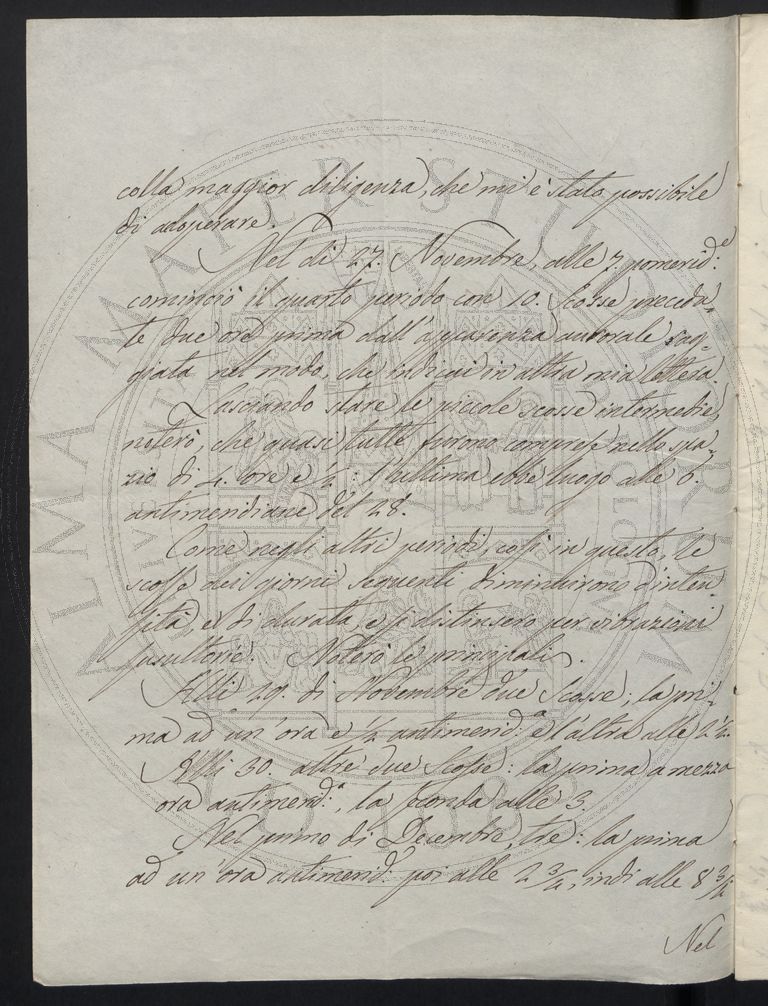 colla maggior diligenza, che mi è stato possibile
di adoperare.
Nel dì 27. Novembre, alle 7. pomerid:e
cominciò il quarto periodo con 10. Scosse preceda=
te due ore prima dall'apparenza aurorale
nel modo, che indicai in altra mia lettera.
Lasciando stare le piccole scosse intermedie,
noterò, che quasi tutte furono comprese nello spa=
zio di 4. ore e ½: l'ultima ebbe luogo alle 6.
antimeridiane del 28.
Come negli altri periodi, così in questo, le
scosse dei giorni seguenti diminuirono d'inten=
sità, e di durata, e si distinsero per vibrazioni
susultorie. Noterò le principali.
Alli 29. di Novembre due Scosse; la pri=
ma ad un'ora e ½ antimerid:a e l'altra alle 2 ½.
Alli 30. altre due Scosse: la prima a mezza
ora antimerid:a, la seconda alle 3.
Nel primo di Decembre, tre: la prima
ad un'ora antimerid: poi alle 2 ¾, indi alle 8 ¾
Nel
ALMA MATER STUDIORUM